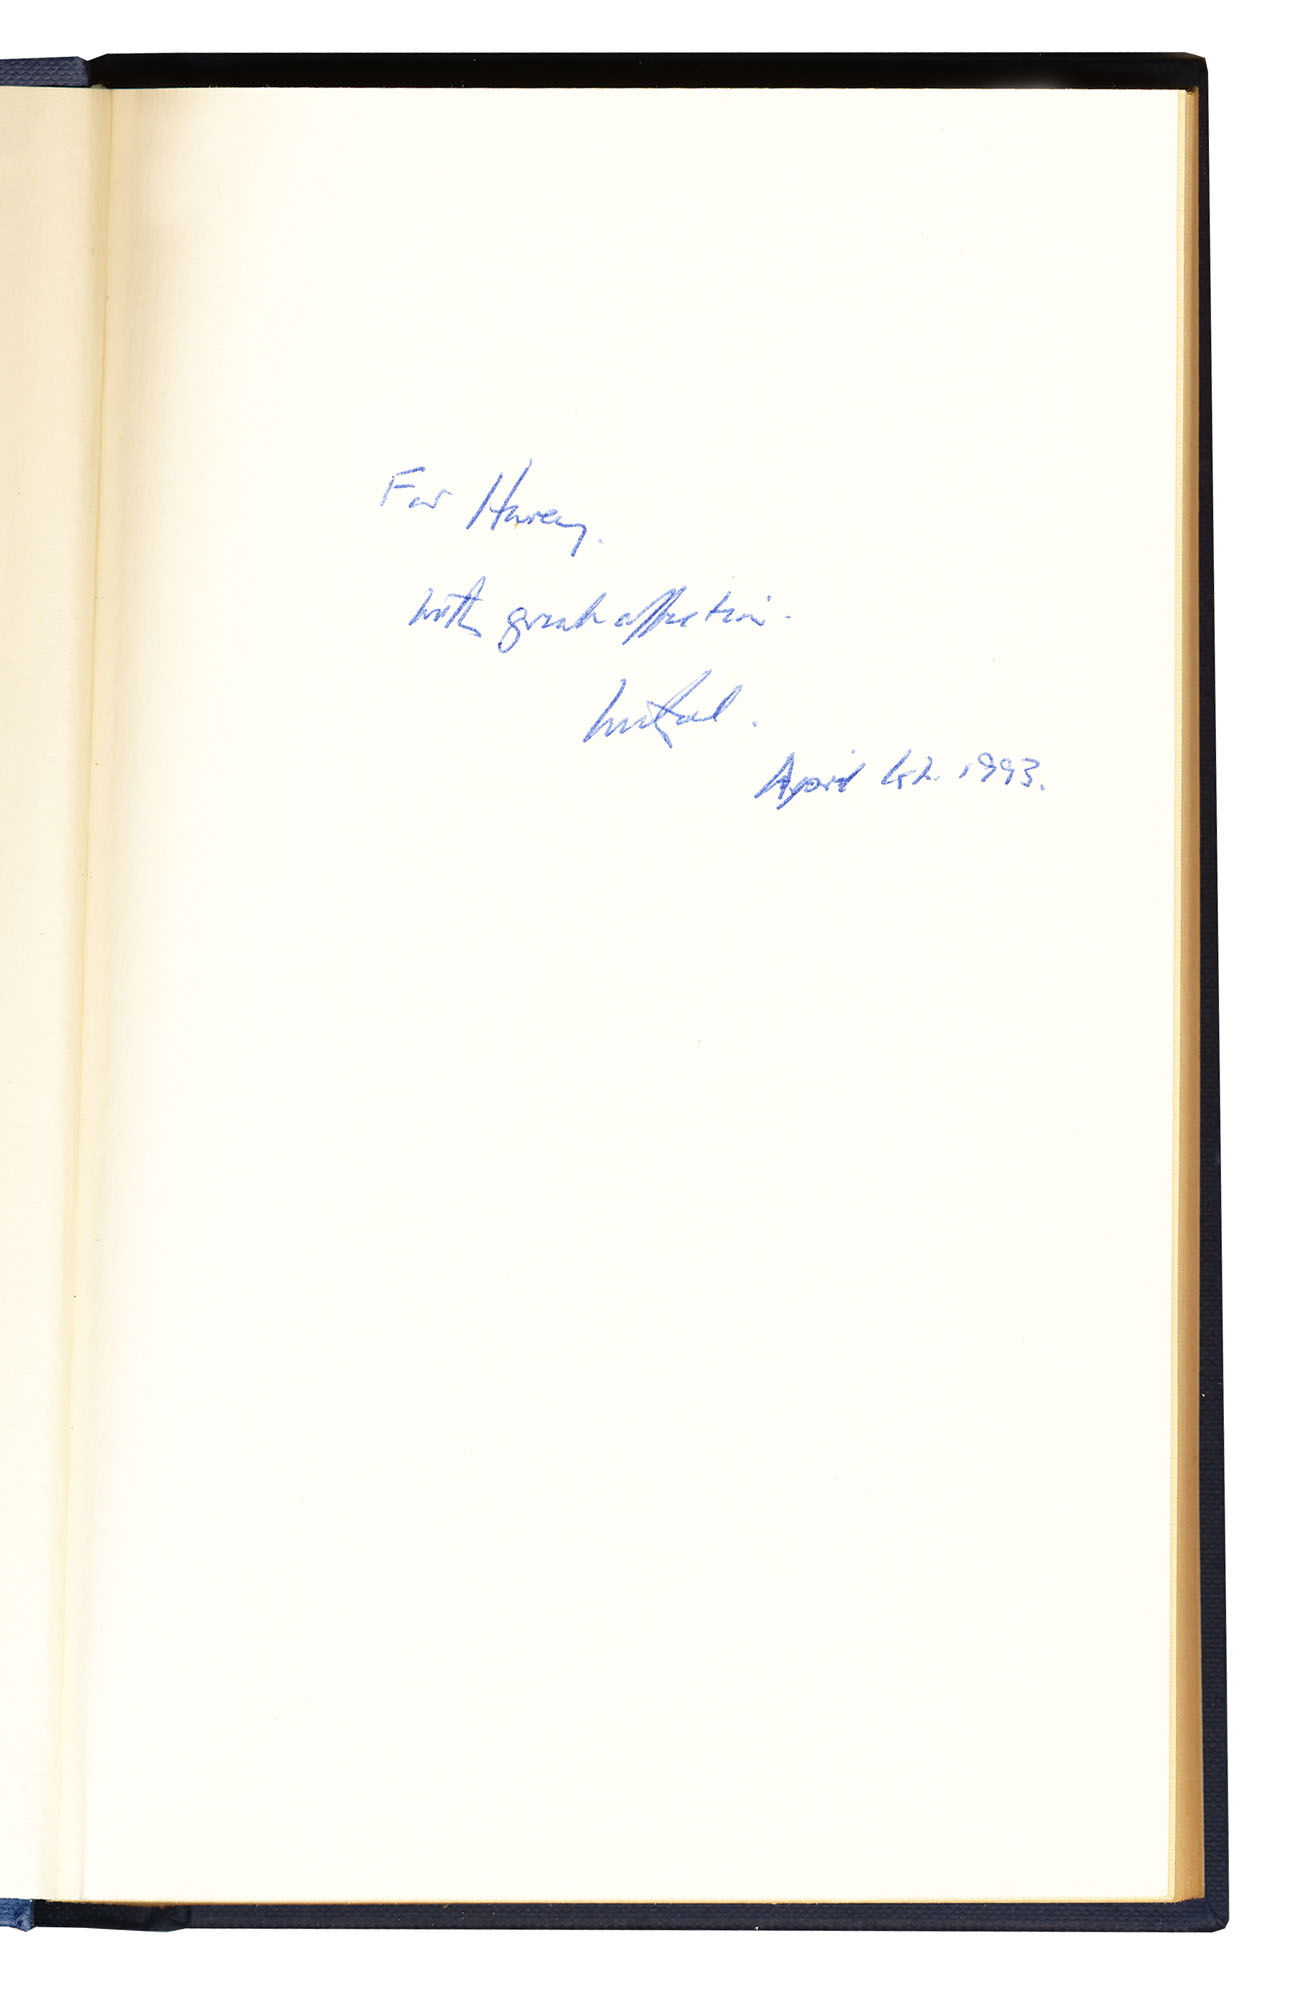 For Harvey.
with great affection.
Michael.
April 1993.